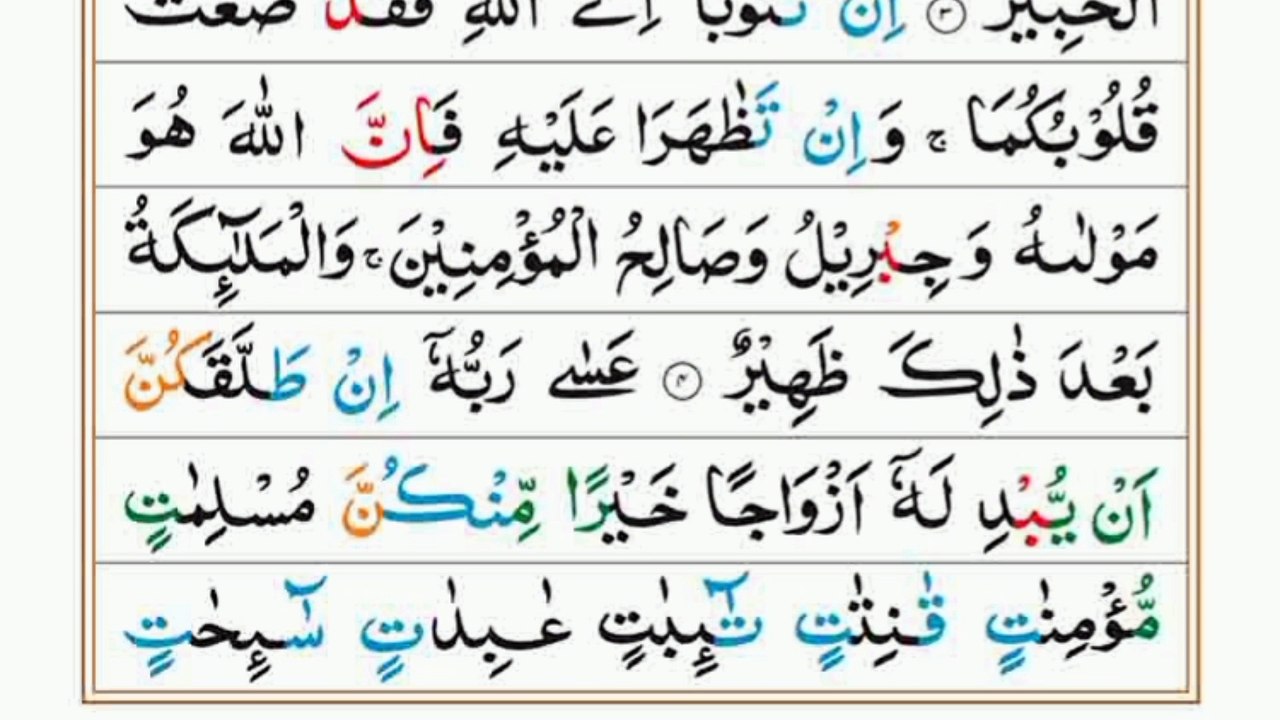 الْخَبِيْرُ ﴿۳﴾ اِنْ تَتُوْبَاۤ اِلَى اللّٰهِ فَقَدْ صَغَتْ
قُلُوْبُكُمَا ۚ وَاِنْ تَظٰهَرَا عَلَيْهِ فَاِنَّ اللّٰهَ هُوَ
مَوْلٰىهُ وَجِبْرِيْلُ وَصَالِحُ الْمُؤْمِنِيْنَ ۚ وَالْمَلٰٓئِكَةُ
بَعْدَ ذٰلِكَ ظَهِيْرٌ ﴿۴﴾ عَسٰى رَبُّهٗۤ اِنْ طَلَّقَكُنَّ
اَنْ يُّبْدِ لَهٗۤ اَزْوَاجًا خَيْرًا مِّنْكُنَّ مُسْلِمٰتٍ
مُّؤْمِنٰتٍ قٰنِتٰتٍ تٰٓئِبٰتٍ عٰبِدٰتٍ سٰٓئِحٰتٍ